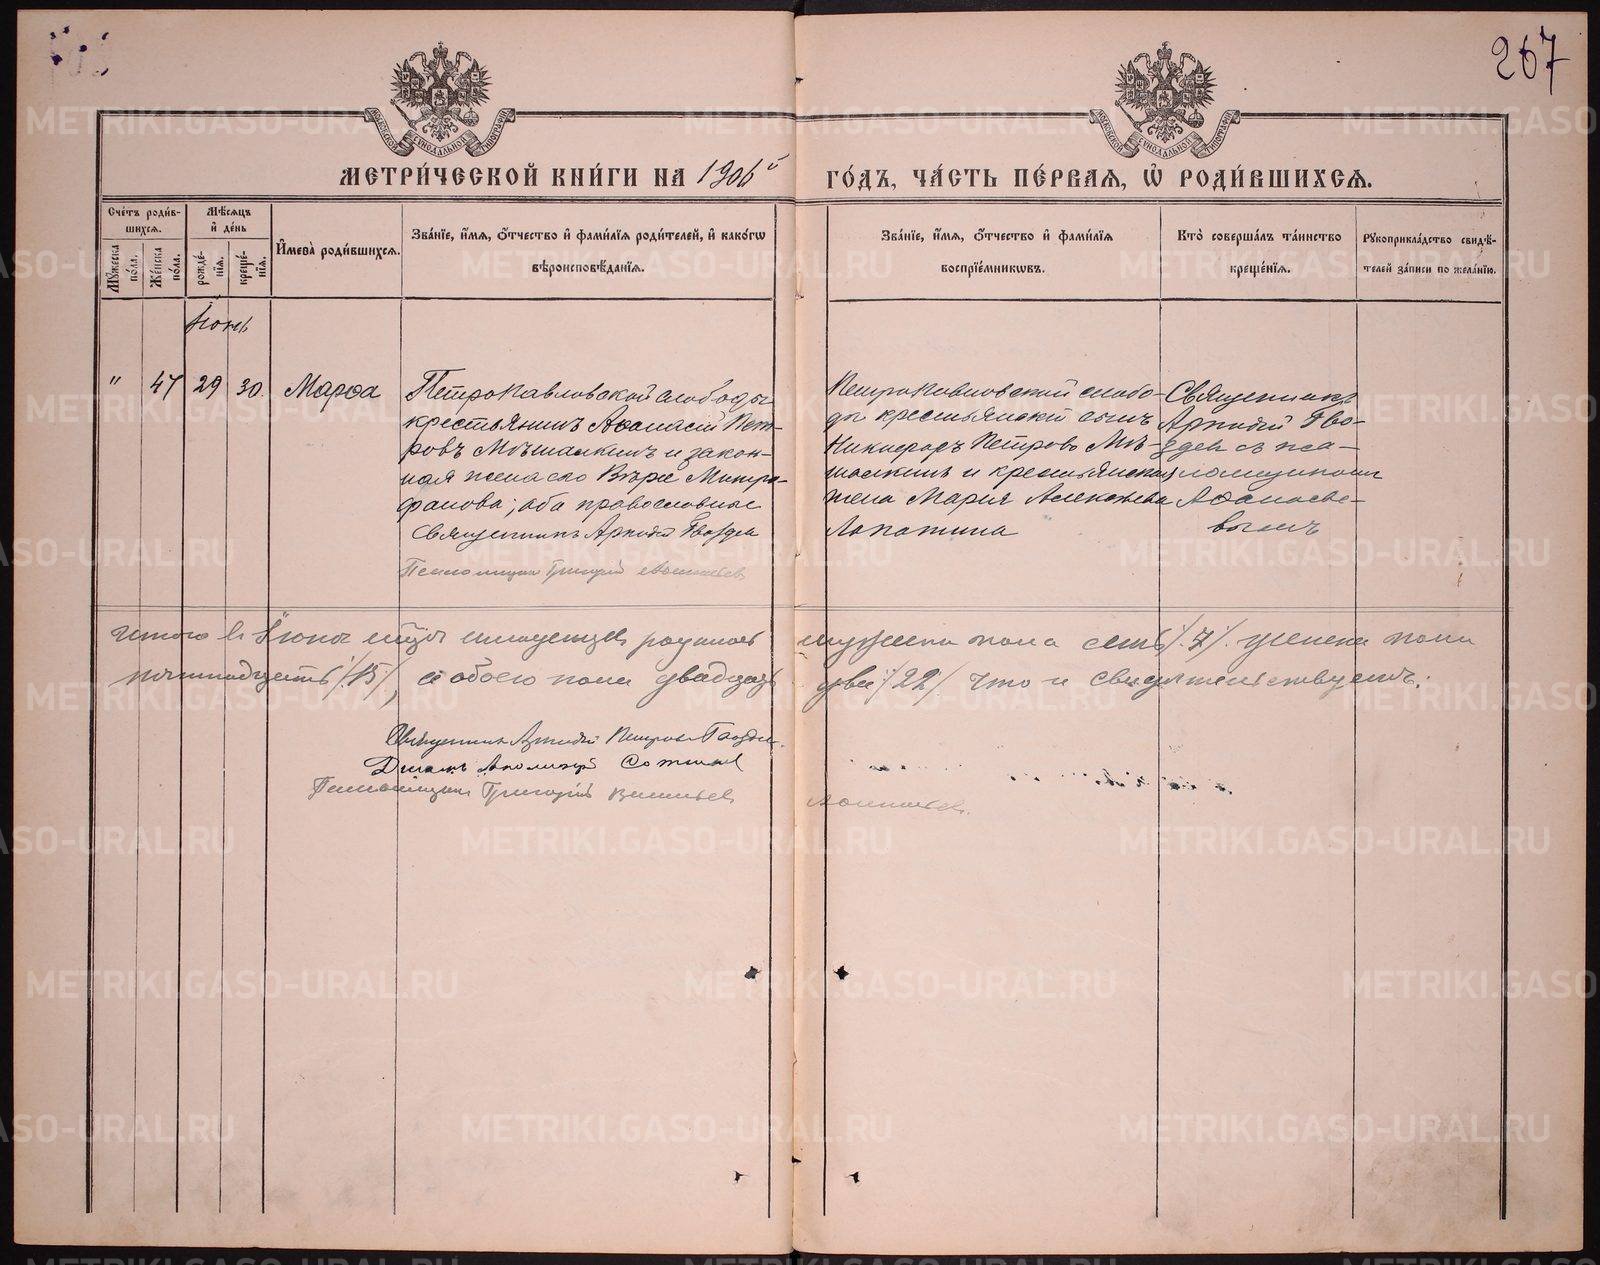 267
МЕТРИ́ЧЕСКОЙ КНИ́ГИ НА 1906й
ГО́ДЪ, ЧА́СТЬ ПЕ́РВАѦ, Ѡ҆ РОДИ́ВШИХСѦ.
Сче́тъ роди́в-
шихсѧ.
Мѣ́сѧцъ
и҆ де́нь
Мꙋ́жеска
по́ла.
Же́нска
по́ла.
рожде́-
нїѧ.
креще́-
нїѧ.
И҆мена̀ роди́вшихсѧ.
Зва́нїе, и҆́мѧ, ѻ҆́тчество и҆ фами́лїѧ роди́телей, и҆ како́гѡ
вѣроисповѣ́данїѧ.
Зва́нїе, и҆́мѧ, ѻ҆́тчество и҆ фами́лїѧ
воспрїе́мникѡвъ.
Кто̀ соверша́лъ та́инство
креще́нїѧ.
Рꙋкоприкла́дство свидѣ́-
телей за́писи по жела́нїю.
Іюнь
" 47 29 30 Марѳа
Петропавловской слободы
крестьянинъ Аѳанасій Пет-
ровъ Мѣшалкинъ и закон-
ная жена его Вѣра Митро-
фанова; оба православные
Священникъ Аркадій Гвоздев
Псаломщик Григорій
Петропавловской слобо-
ды крестьянскій сынъ
Никифоръ Петровъ Мѣ-
шалкинъ и крестьянская
жена Марія Алексѣева
Лопатина
Священникъ
Аркадій Гво-
здев съ пса-
ломщикомъ
Аѳанасье-
вымъ
Итого в Іюнѣ мѣсяце родилось мужеска пола семь /7/. женска пола
пятнадцать /15/, а обоего пола двадцать два /22/ что и свидѣтельствуемъ:
Священник Аркадій Петровъ Гвоздев.
Діаконъ
Псаломщик Григорій Васильев
METRIKI.GASO-URAL.RU